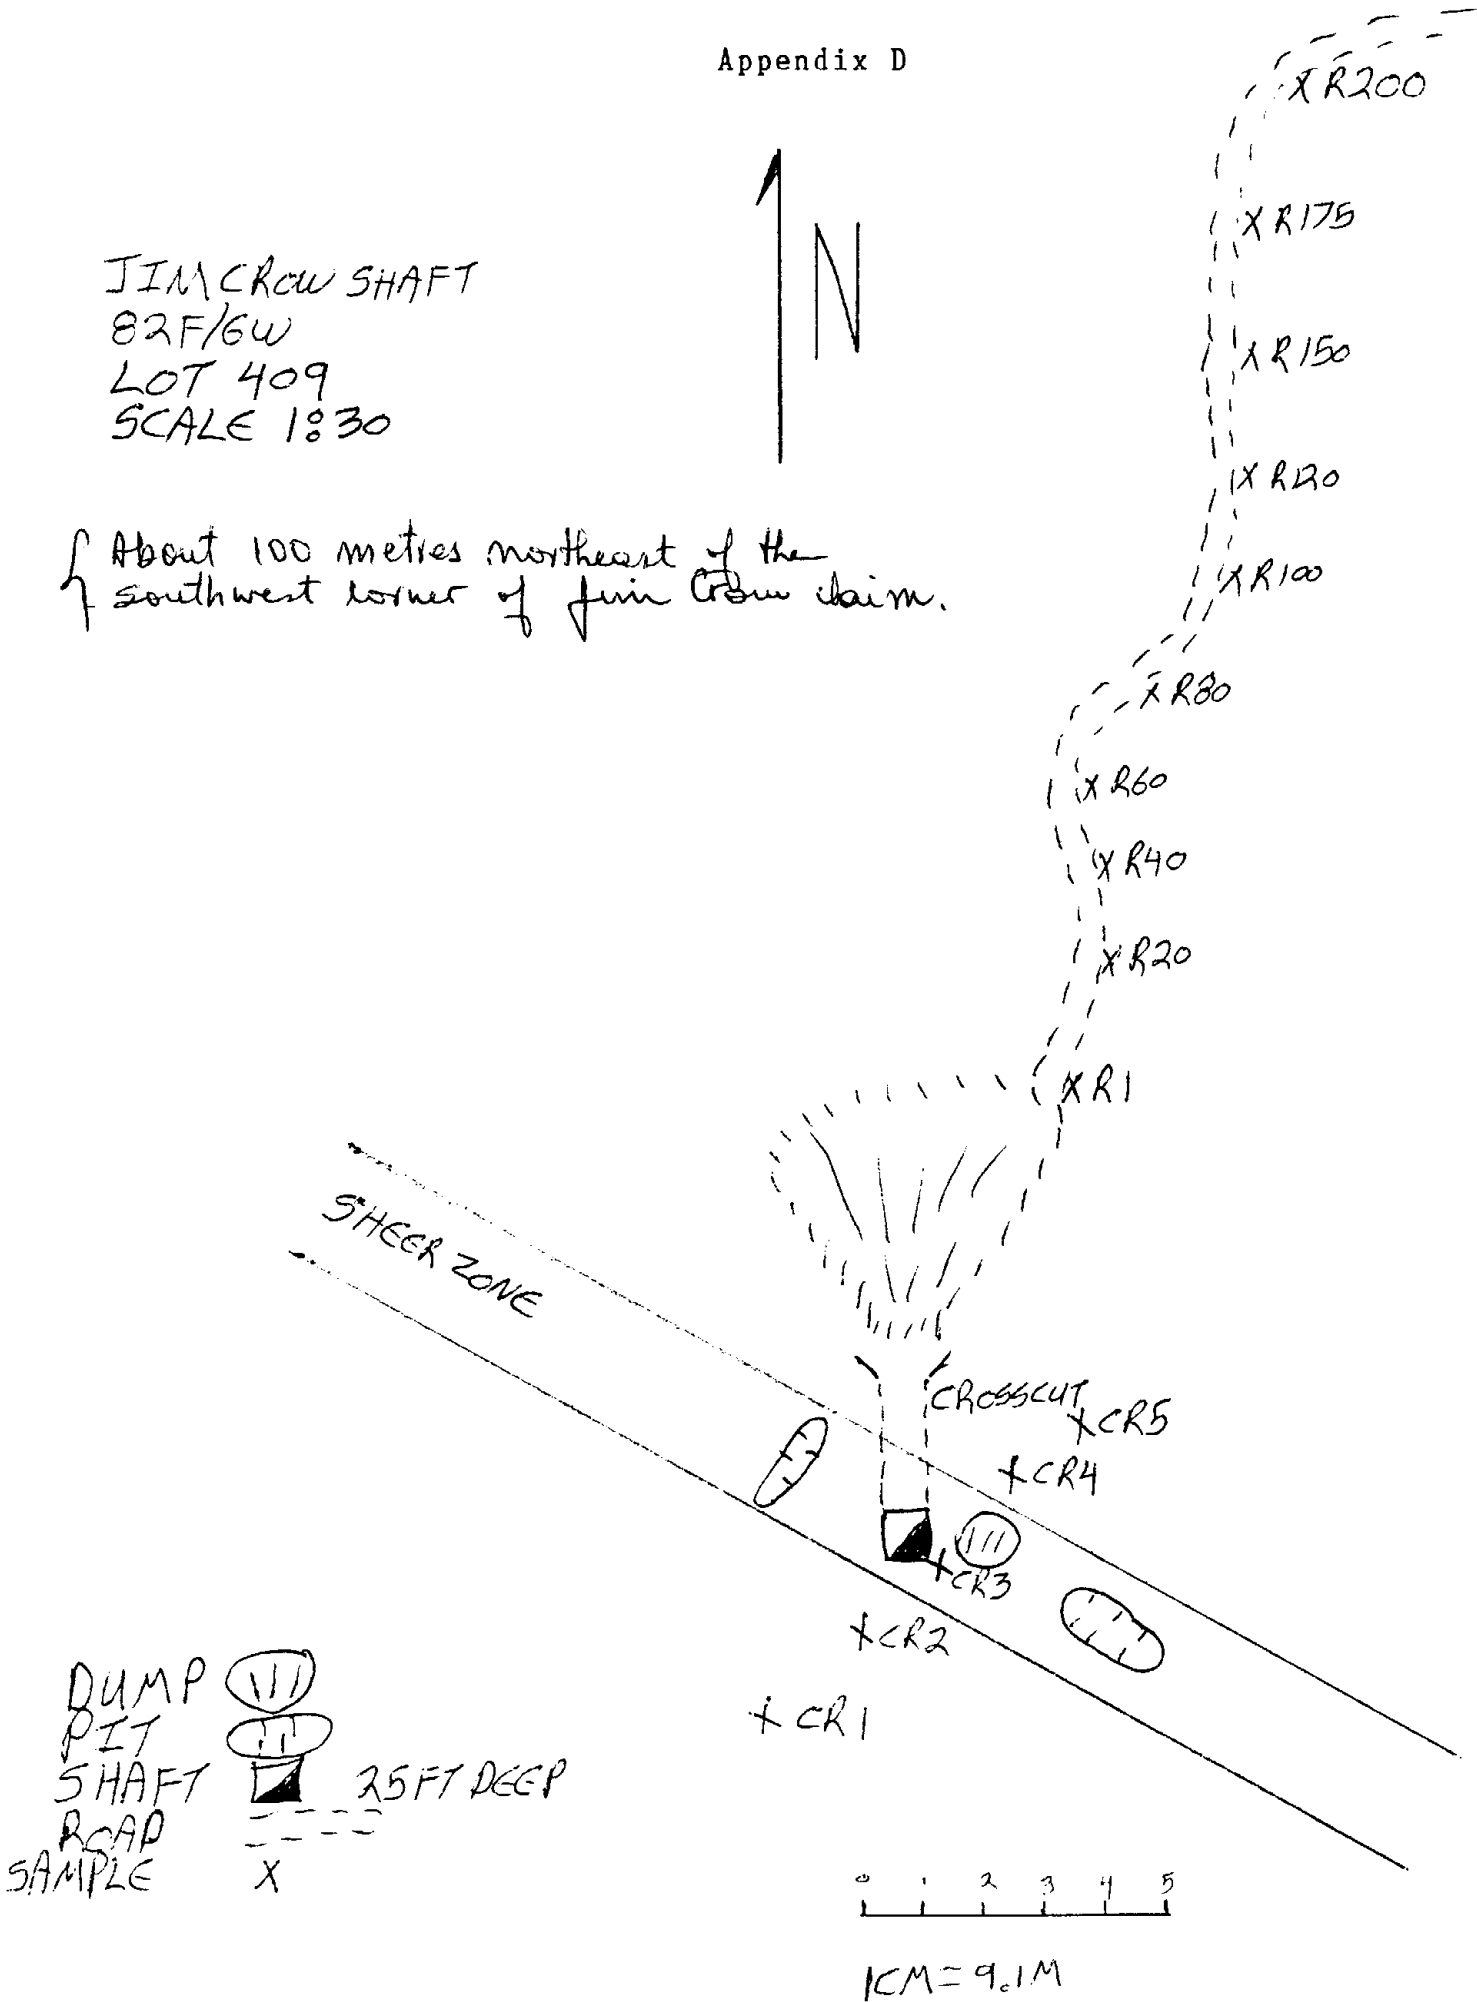 Appendix D
N
JIM CROW SHAFT
82F/6W
LOT 409
SCALE 1:30
About 100 metres northeast of the
southwest corner of Jim Crow claim.
X R200
X R175
X R150
X R120
X R100
X R80
X R60
X R40
X R20
X R1
SHEER ZONE
CROSSCUT
CR5
CR4
CR3
CR2
CR1
DUMP
PIT
SHAFT 25FT DEEP
ROAD
SAMPLE X
0 1 2 3 4 5
1CM = 9.1M